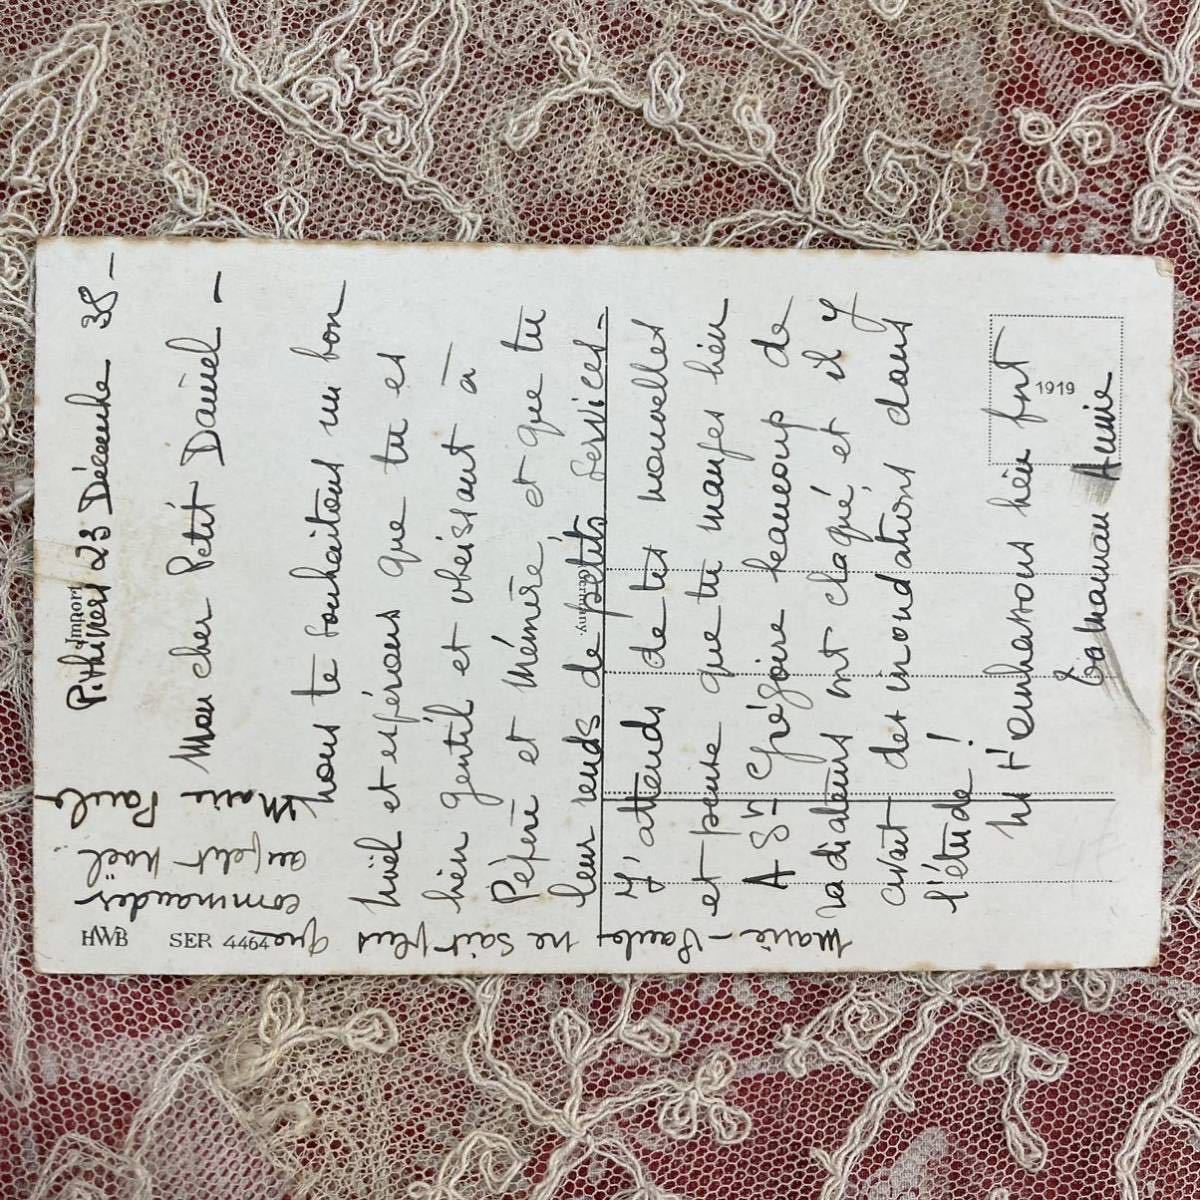 Pithiviers 23 Décembre 38 -
Mon cher Petit Daniel -
Nous te souhaitons un bon
Noël et espérons que tu es
bien gentil et obéissant à
Pépère et Mémère, et que tu
leur rends de petits services -
J'attends de tes nouvelles
et pense que tu manges bien
A St Grégoire beaucoup de
radiateurs ont claqué, et il y
avait des inondations dans
l'étude !
Ns t'embrassons bien fort
Ta maman Annie
Marie-Paule ne sait plus que
commander
au petit Noël.
Marie Paule
Import
Germany.
HWB SER 4464
1919